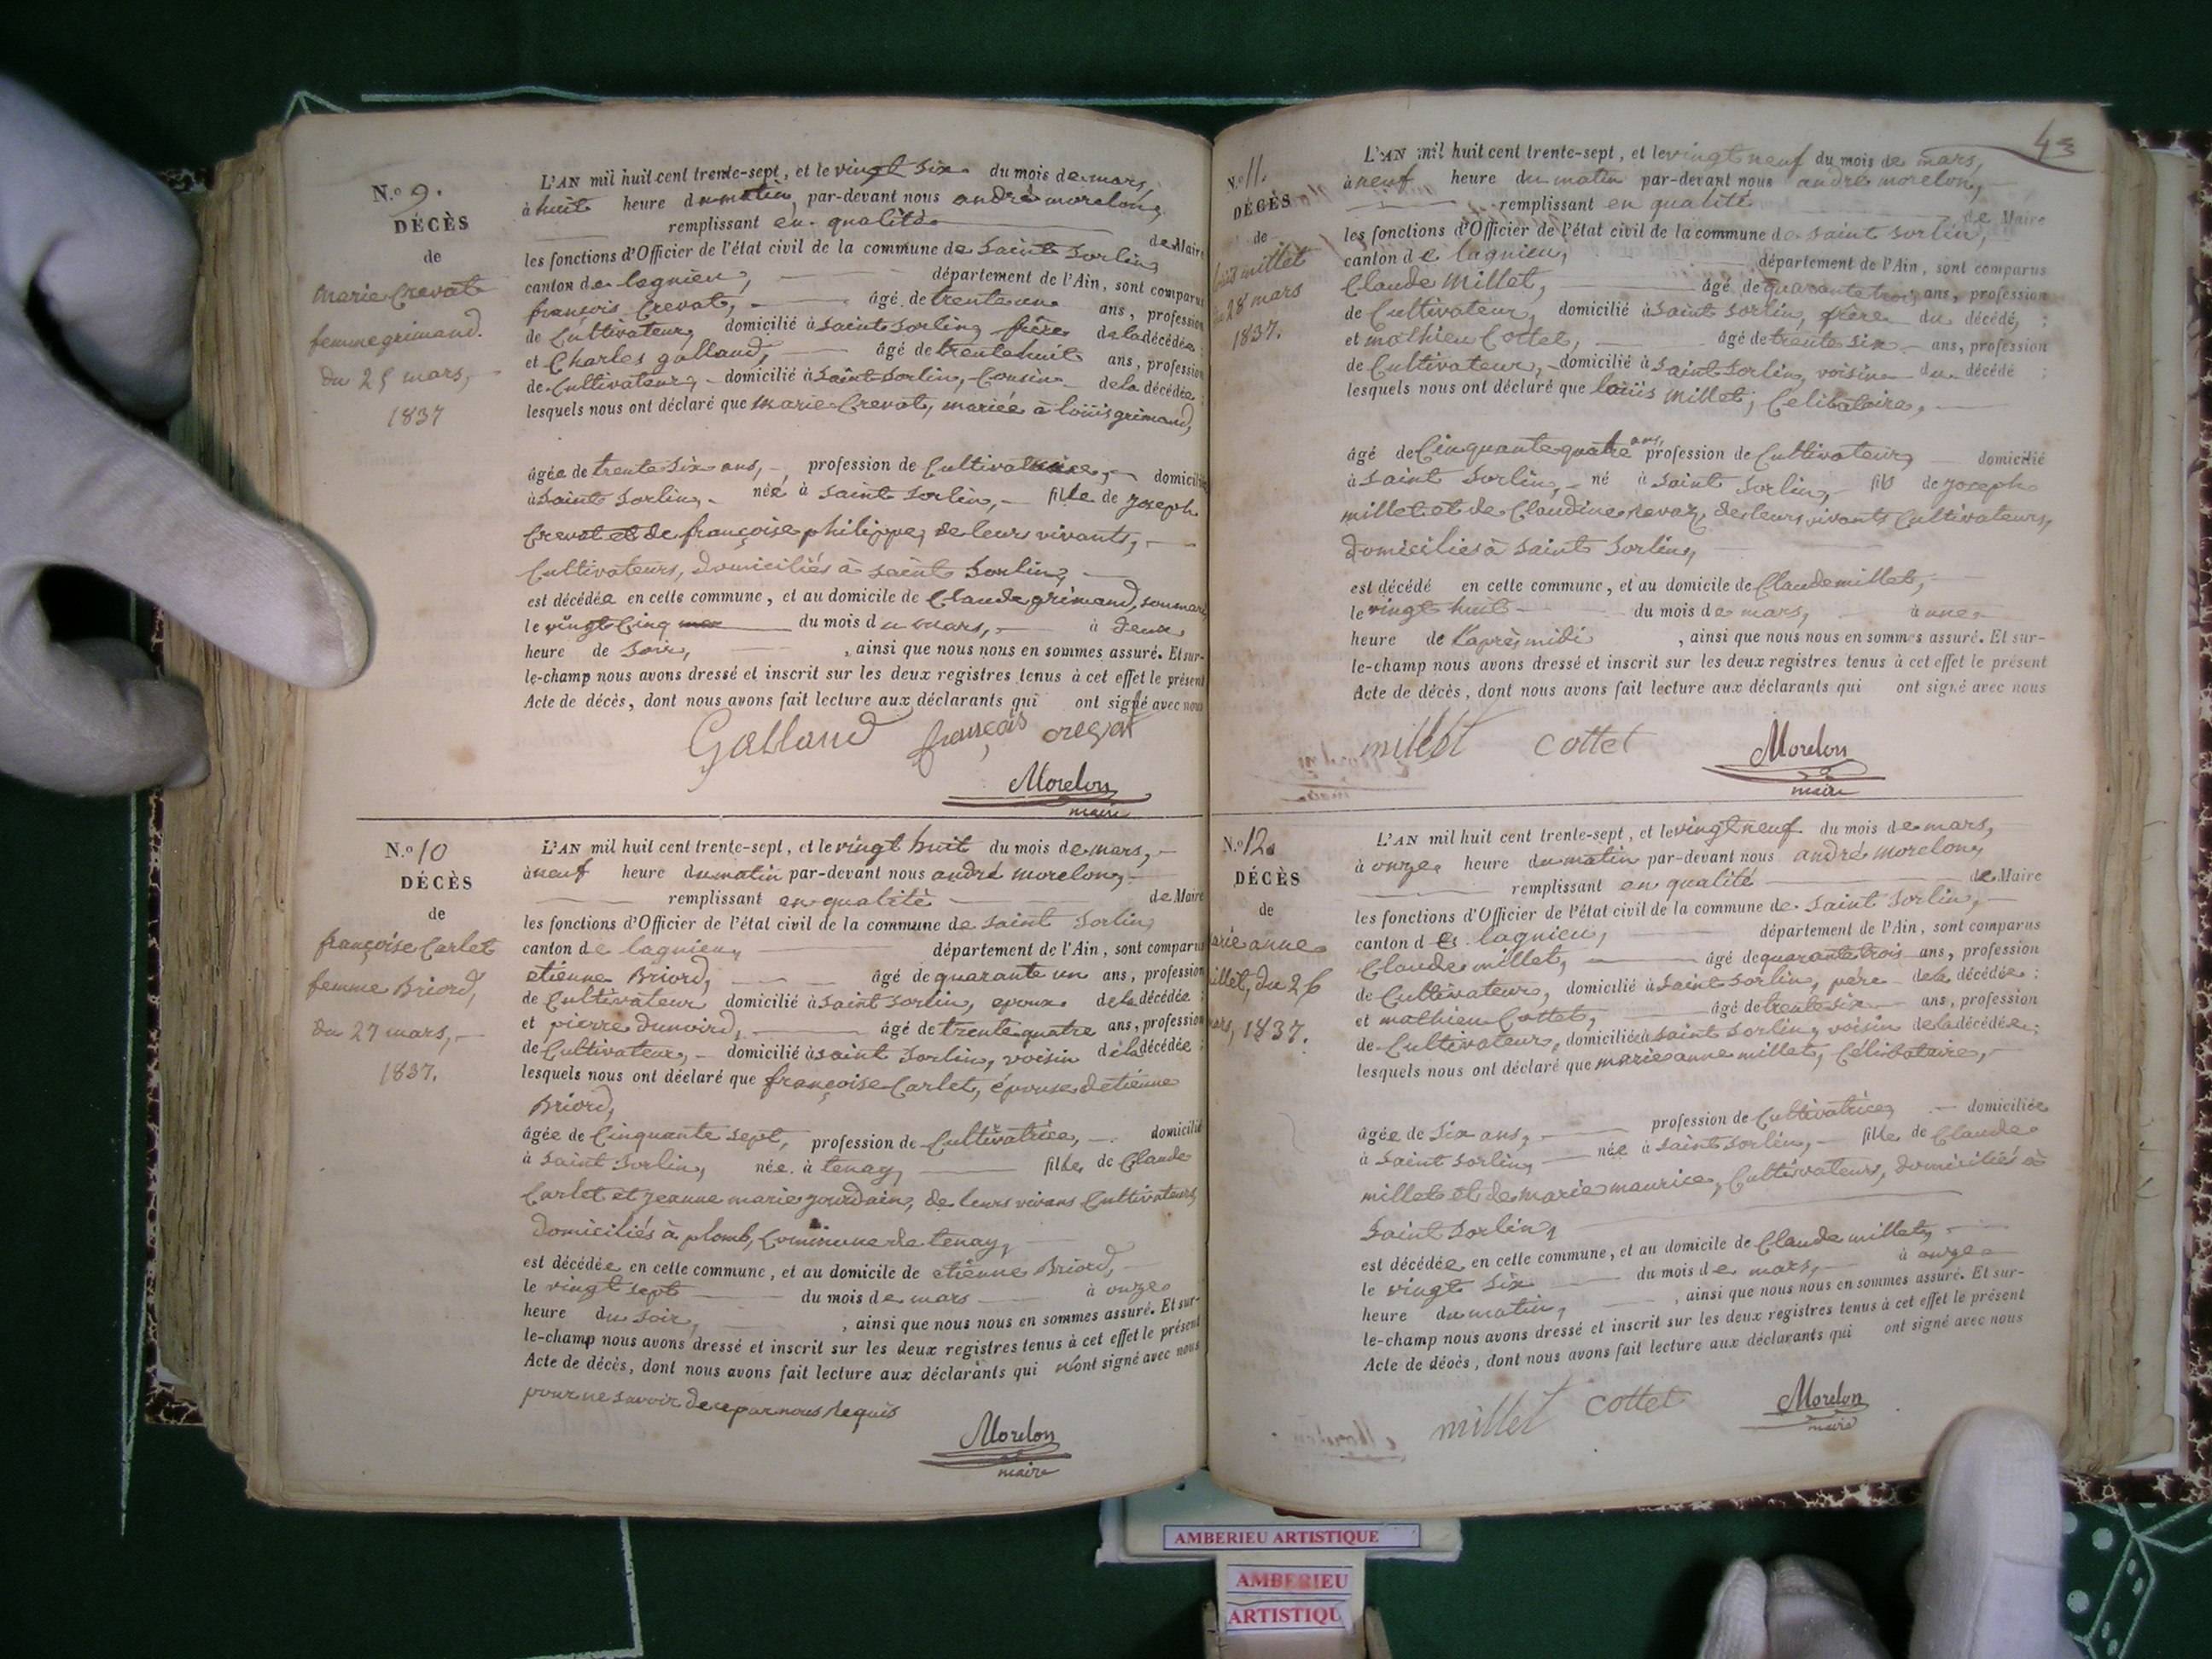 N.º 9.
DÉCÈS
de
marie Crevat
femme grimand.
du 25 mars,
1837
L'AN mil huit cent trente-sept, et le vingt six du mois de mars,
à huit heure du matin, par-devant nous andré morelon,
remplissant en qualité de Maire
les fonctions d'Officier de l'état civil de la commune de Saint Sorlin,
canton de lagnieu, département de l'Ain, sont comparus
françois Crevat, âgé de trente un ans, profession
de Cultivateur, domicilié à Saint Sorlin, frère de la décédée;
et Charles galland, âgé de trente huit ans, profession
de Cultivateur, domicilié à Saint Sorlin, Cousin de la décédée;
lesquels nous ont déclaré que Marie Crevat, mariée à louis grimand,
âgée de trente six ans, profession de Cultivatrice, domicilié
à Saint Sorlin, née à saint Sorlin, fille de joseph
Crevat et de françoise philippe, de leurs vivants,
Cultivateurs, domiciliés à saint Sorlin,
est décédée en cette commune, et au domicile de Claude grimand, son mari
le vingt Cinq du mois du mars, à deux
heure de Soir, , ainsi que nous nous en sommes assuré. Et sur-
le-champ nous avons dressé et inscrit sur les deux registres tenus à cet effet le présent
Acte de décès, dont nous avons fait lecture aux déclarants qui ont signé avec nous
Galland françois crevat
Morelon
maire
N.º 10
DÉCÈS
de
françoise Carlet
femme Briord,
du 27 mars,
1837.
L'AN mil huit cent trente-sept, et le vingt huit du mois de mars,
à neuf heure du matin par-devant nous andré morelon,
remplissant en qualité de Maire
les fonctions d'Officier de l'état civil de la commune de saint Sorlin,
canton de lagnieu, département de l'Ain, sont comparus
etiénne Briord, âgé de quarante un ans, profession
de Cultivateur domicilié à saint Sorlin, epoux de la décédée;
et pierre dunoird, âgé de trente quatre ans, profession
de Cultivateur, domicilié à saint Sorlin, voisin de la décédée;
lesquels nous ont déclaré que françoise Carlet, épouse d'etiénne
Briord,
âgée de Cinquante sept, profession de Cultivatrice, domicilié
à saint Sorlin, née à tenay, fille de Claude
Carlet et jeanne marie jourdain, de leurs vivans Cultivateurs,
domiciliés à plomb, Commune de tenay,
est décédée en cette commune, et au domicile de etiénne Briord,
le vingt sept du mois de mars à onze
heure du soir, , ainsi que nous nous en sommes assuré. Et sur-
le-champ nous avons dressé et inscrit sur les deux registres tenus à cet effet le présent
Acte de décès, dont nous avons fait lecture aux déclarants qui n'ont signé avec nous
pour ne savoir de ce par nous requis
Morelon
maire
43
N.º 11.
DÉCÈS
de
millet
28 mars
1837.
L'AN mil huit cent trente-sept, et le vingt neuf du mois de mars,
à neuf heure du matin par-devant nous andré morelon,
remplissant en qualité de Maire
les fonctions d'Officier de l'état civil de la commune de saint Sorlin,
canton de lagnieu, département de l'Ain, sont comparus
Claude Millet, âgé de quarante trois ans, profession
de Cultivateur, domicilié à saint Sorlin, frère du décédé;
et mathieu Cottet, âgé de trente six ans, profession
de Cultivateur, domicilié à saint Sorlin, voisin du décédé;
lesquels nous ont déclaré que louis millet, Celibataire,
âgé de Cinquante quatre ans, profession de Cultivateur, domicilié
à saint Sorlin, né à saint Sorlin, fils de joseph
millet et de Claudine revaz, de leurs vivants Cultivateurs,
domiciliés à saint Sorlin,
est décédé en cette commune, et au domicile de Claude millet,
le vingt huit du mois de mars, à une
heure de l'après midi , ainsi que nous nous en sommes assuré. Et sur-
le-champ nous avons dressé et inscrit sur les deux registres tenus à cet effet le présent
Acte de décès, dont nous avons fait lecture aux déclarants qui ont signé avec nous
millet cottet Morelon
maire
N.º 12.
DÉCÈS
de
arie anne
illet, du 26
ars, 1837.
L'AN mil huit cent trente-sept, et le vingt neuf du mois de mars,
à onze heure du matin par-devant nous andré morelon,
remplissant en qualité de Maire
les fonctions d'Officier de l'état civil de la commune de saint Sorlin,
canton de lagnieu, département de l'Ain, sont comparus
Claude millet, âgé de quarante trois ans, profession
de Cultivateur, domicilié à saint Sorlin, père de la décédée;
et mathieu Cottet, âgé de trente six ans, profession
de Cultivateur, domicilié à saint Sorlin, voisin de la décédée;
lesquels nous ont déclaré que marie anne millet, Célibataire,
âgée de six ans, profession de Cultivatrice, domiciliée
à saint Sorlin, née à saint Sorlin, fille de Claude
millet et de marie maurice, Cultivateurs, domiciliés à
Saint Sorlin,
est décédée en cette commune, et au domicile de Claude millet,
le vingt six du mois de mars, à onze
heure du matin, , ainsi que nous nous en sommes assuré. Et sur-
le-champ nous avons dressé et inscrit sur les deux registres tenus à cet effet le présent
Acte de décès, dont nous avons fait lecture aux déclarants qui ont signé avec nous
millet cottet Morelon
maire
AMBERIEU ARTISTIQUE
AMBERIEU
ARTISTIQU